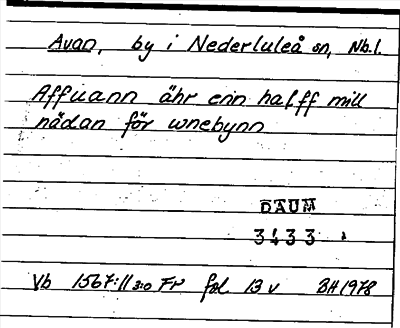 Avan, by i Nederluleå sn, Nb.l.
Affuann ähr enn halff mill
nädan för wnebynn
DAUM
3433
Vb 1567:11 3:0 Fr fol 13 v BH 1978